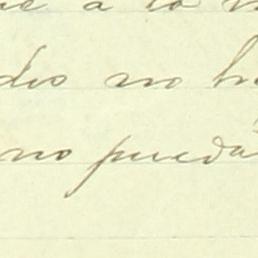 a lo
dio no h
no pueda